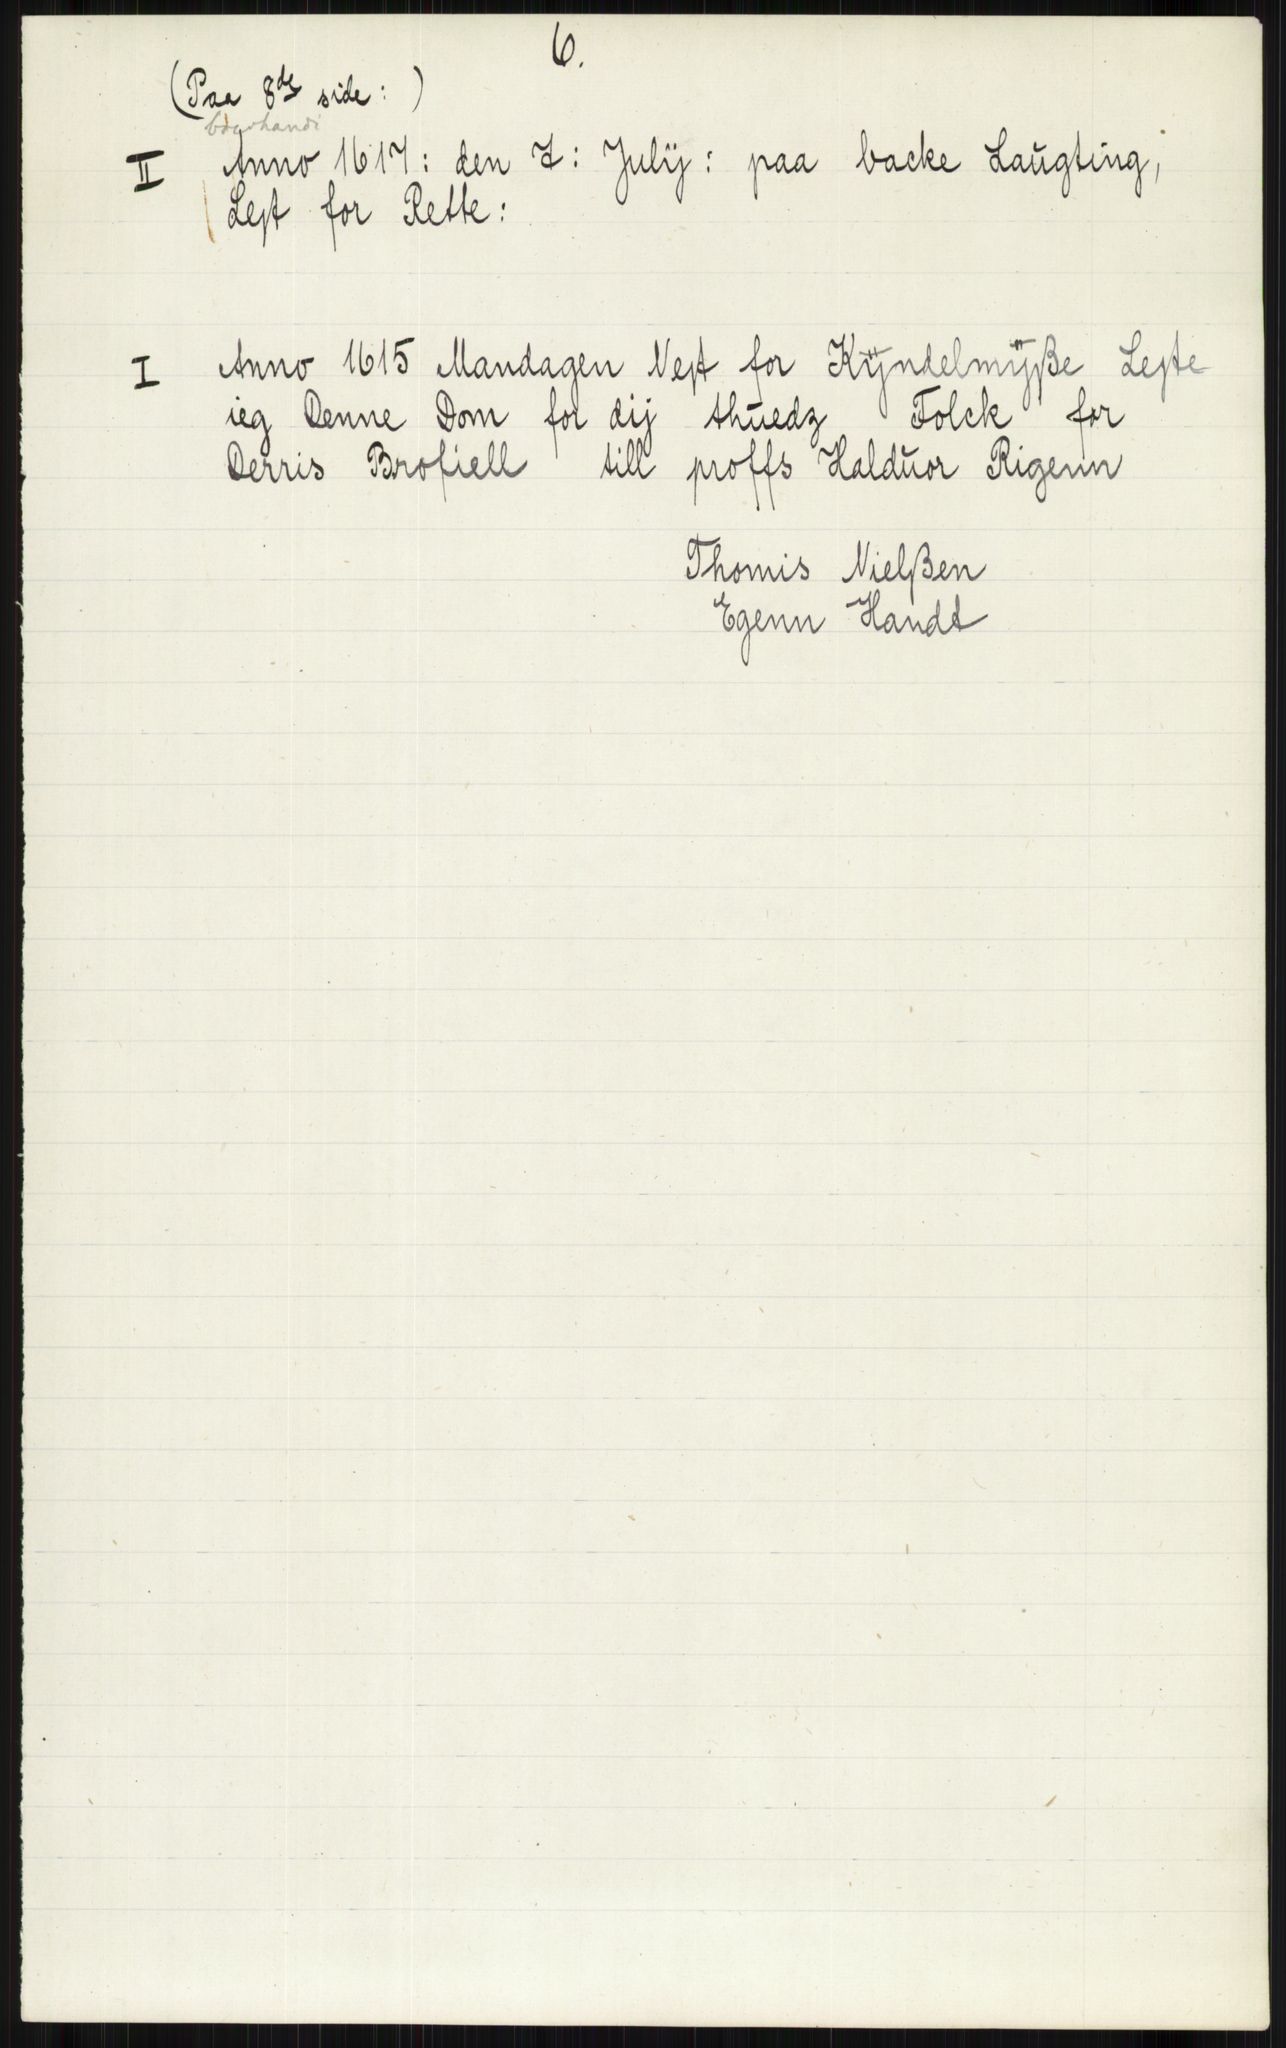 6.
(Paa 8de side: )
II Anno 1617: den 7: Julÿ: paa backe Laugting,
Lest for Rette:
I Anno 1615 Mandagen Nest for Kÿndelmÿße Leste
ieg Denne Dom for dij thuedz Folck for
Derris Brofiell till proffs Halduor Rigenn
Thomis Nielßen
Egenn Handt